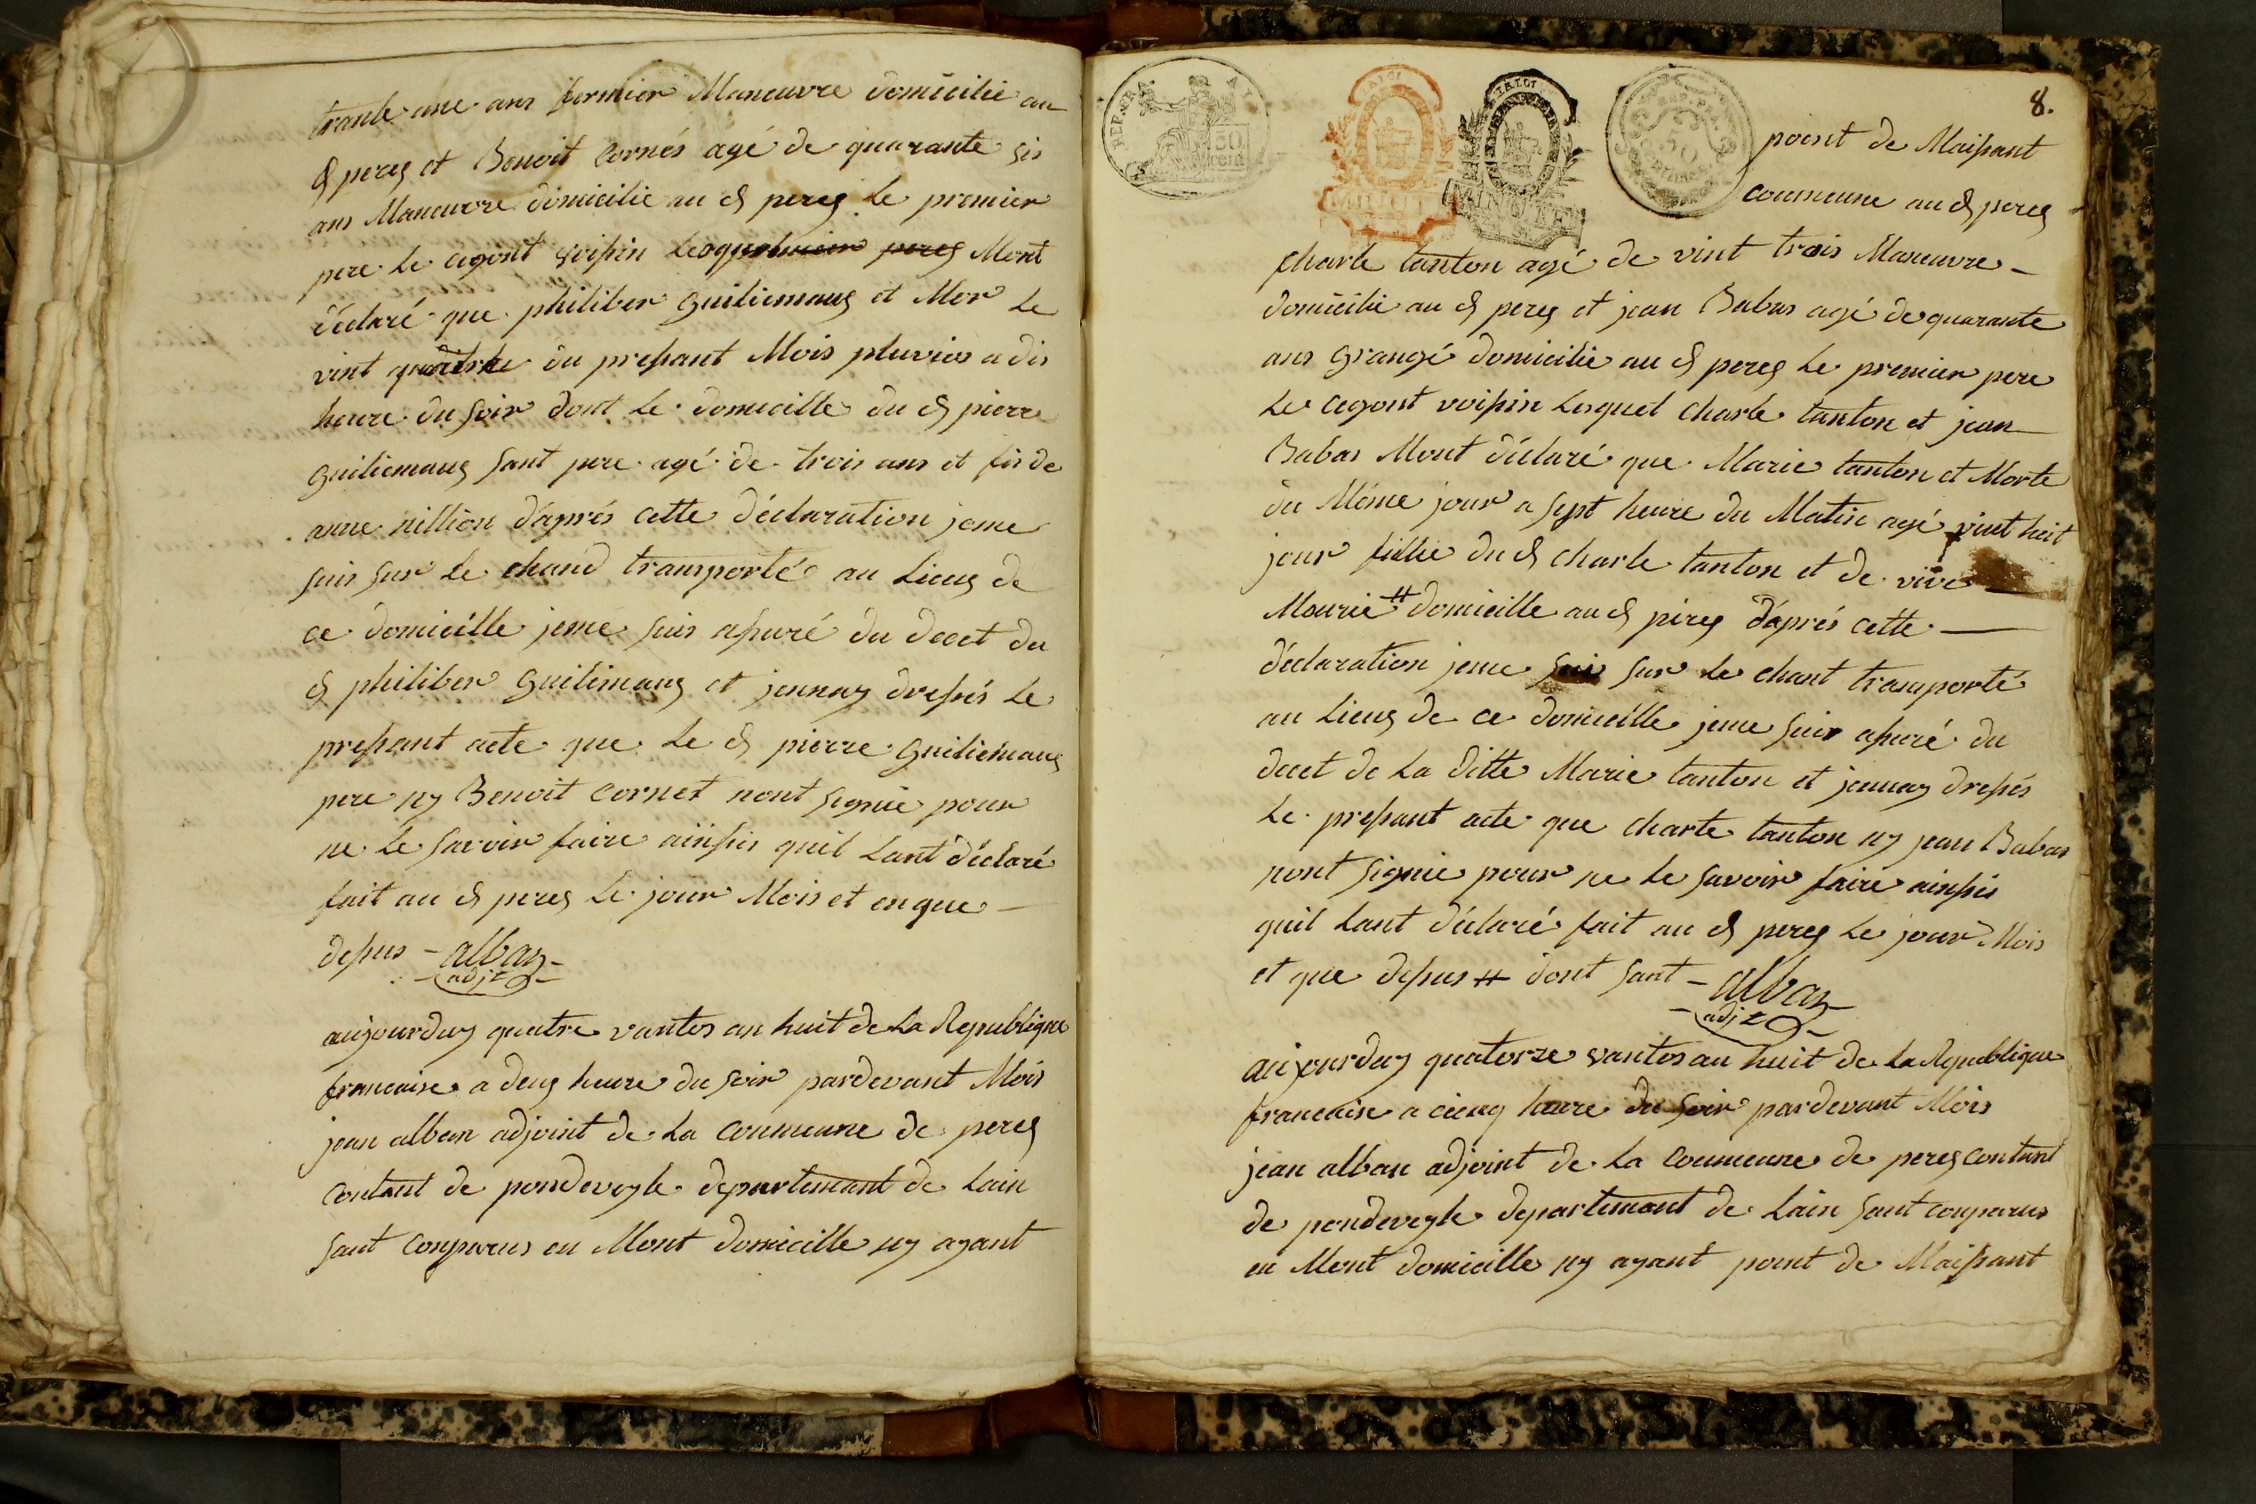 trante une ans fermier Maneuvre domicilié au
d peres et Benoit Cornés agé de quarante sis
ans Maneuvre domicilié au d peres Le premier
pere Le cegont voisin Mont
déclaré que philiber guiliemaus et Mor Le
vint quatre du presant Mois pluvios a dis
heure du soir dont Le domicille du d pierre
guiliemaus sant pere agé de trois ans et fis de
anne nillion d'aprés cette déclaration jeme
suis sur Le chand transporté au Lieus de
ce domicille jeme suis asuré du decet du
d philiber guilimaus et jennay dressés Le
presant acte que Le d pierre guiliemaus
pere ny Benoit Cornet nont signié pour
ne Le savoir faire ainsies quil Lant déclaré
fait au d peres Le jour Mois et en que
desus - alban
adjt
aujourduy quatre vantos an huit de La Republique
francaise a deus heure du soir pardevant Mois
jean alban adjoint de La Coumeune de peres
contant de pondeveyle departemant de Lain
sant conparus en Mont domicille ny ayant
8.
REP. FRA.
point de Maisant
coumeune au d peres
charle tanton agé de vint trois Maneuvre
domicilié au d peres et jean Babas agé de quarante
ans grangé domicilié au d peres Le premier pere
Le cegont voisin Lesquel charle tanton et jean
Babas Mont déclaré que Marie tanton et Morte
du Méme jour a sept heure du Matin agé vint huit
jour fillie du d charle tanton et de vive
Mourie # domicille au d peres d'aprés cette
déclaration jeme suis sur Le chant transporté
au Lieus de ce domicille jeme suis asuré du
decet de La ditte Marie tanton et jennay dressés
Le presant acte que charle tanton ny jean Babas
nont signié pour ne Le savoir faire ainsies
quil Lant déclaré fait au d peres Le jour Mois
et que desus # dont sant - alban
adjt
aujourduy quatorze vantos an huit de La Republique
francaise a cieng heure du soir pardevant Mois
jean alban adjoint de La Coumeune de peres contant
de pondeveyle departemant de Lain sant conparus
en Mont domicille ny ayant point de Maisant